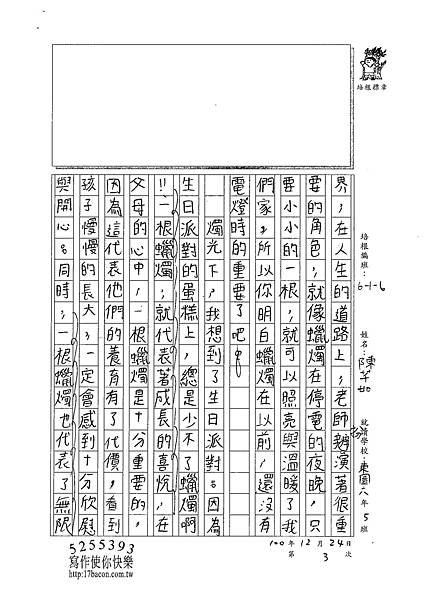 培根標章
培根編班:
6-1-6
姓名
陳芊如
就讀學校:
東園
八年5班
界,在人生的道路上,老師扮演著很重
要的角色,就像蠟燭在停電的夜晚,只
要小小的一根,就可以照亮與溫暖了我
們家。所以你明白蠟燭在以前,還沒有
電燈時的重要了吧!
燭光下,我想到了生日派對。因為
生日派對的蛋糕上,總是少不了蠟燭啊
!!一根蠟燭,就代表著成長的喜悅,在
父母的心中,一根蠟燭是十分重要的,
因為這代表他們的養育有了代價,看到
孩子慢慢的長大,一定會感到十分欣慰
與開心。同時,一根蠟燭也代表了無限
100年12月24日
第3次
5255393
寫作使你快樂
http://17bacon.com.tw